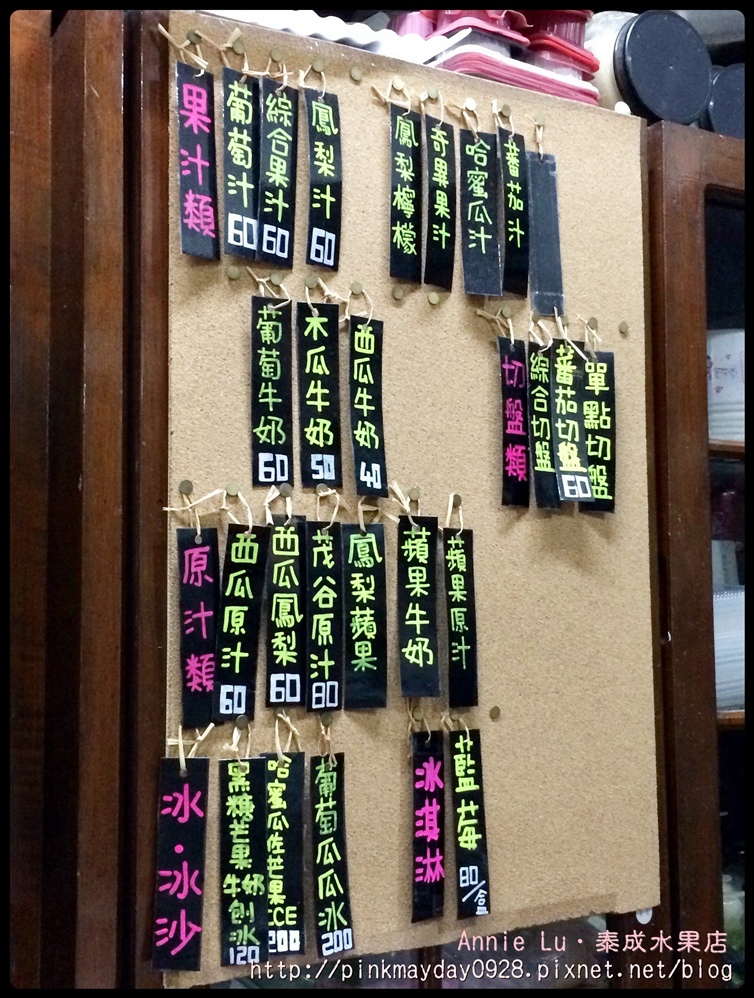 果汁類
葡萄汁 60
綜合果汁 60
鳳梨汁 60
鳳梨檸檬
奇異果汁
哈蜜瓜汁
蕃茄汁
葡萄牛奶 60
木瓜牛奶 50
西瓜牛奶 40
切盤類
綜合切盤
蕃茄切盤 60
單點切盤
原汁類
西瓜原汁 60
西瓜鳳梨 60
茂谷原汁 80
鳳梨蘋果
蘋果牛奶
蘋果原汁
冰·冰沙
黑糖芒果牛奶刨冰 120
哈蜜瓜佐芒果ICE 200
葡萄瓜瓜冰 200
冰淇淋
藍莓 80/盒
Annie Lu·泰成水果店
http://pinkmayday0928.pixnet.net/blog